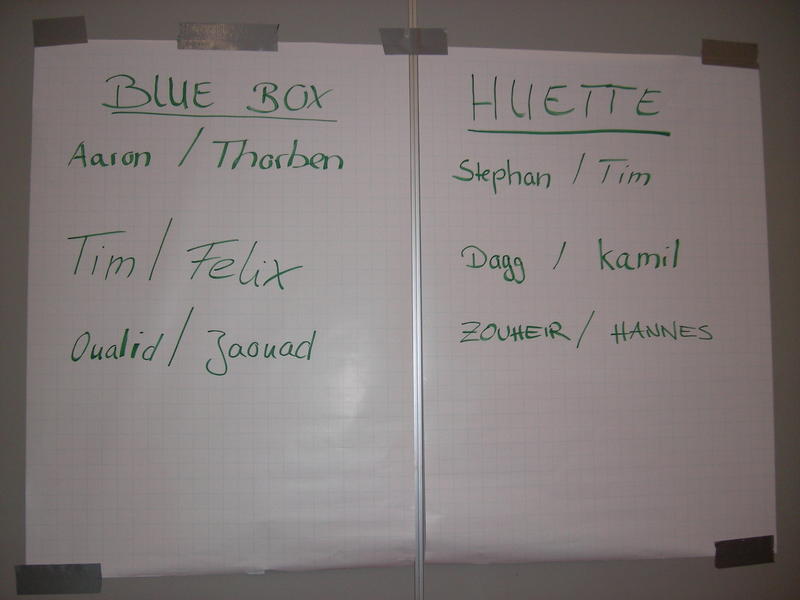 BLUE BOX
Aaron / Thorben
Tim / Felix
Oualid / Jaouad
HUETTE
Stephan / Tim
Dagg / Kamil
ZOUHEIR / HANNES